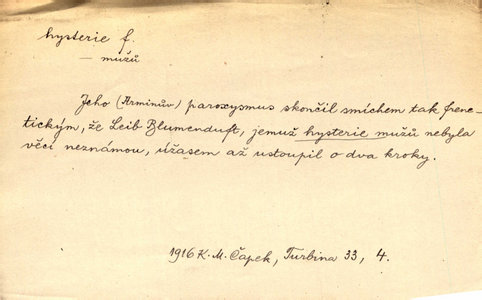 hysterie f.
— mužů
Jeho (Arminův) paroxysmus skončil smíchem tak frene-
tickým, že Leib Blumenduft, jemuž hysterie mužů nebyla
věcí neznámou, úžasem až ustoupil o dva kroky.
1916 K. M. Čapek, Turbina 33, 4.